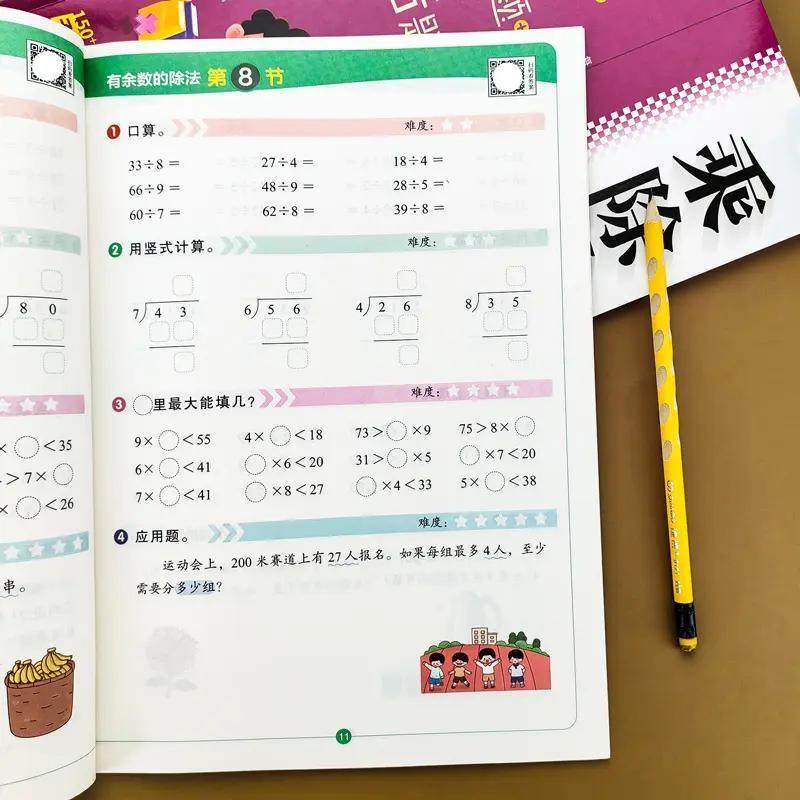 150+
乘除
有余数的除法 第 8 节
扫码看答案
1 口算。 难度:
33÷8 = 27÷4 = 18÷4 =
66÷9 = 48÷9 = 28÷5 =
60÷7 = 62÷8 = 39÷8 =
2 用竖式计算。 难度:
8 0
7 4 3 6 5 6 4 2 6 8 3 5
3 ○里最大能填几? 难度:
9×○<55 4×○<18 73>○×9 75>8×○
6×○<41 ○×6<20 31>○×5 ○×7<20
7×○<41 ○×8<27 ○×4<33 5×○<38
×○<35
>7×○
×○<26
4 应用题。 难度:
运动会上,200 米赛道上有 27 人报名。如果每组最多 4 人,至少
需要分多少组?
串。
11